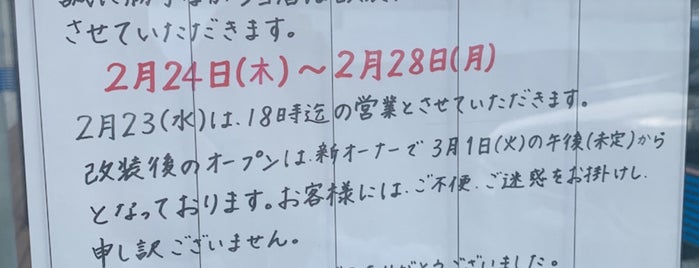 誠に勝手ながら当店は
させていただきます。
2月24日(木)～2月28日(月)
2月23(水)は、18時迄の営業とさせていただきます。
改装後のオープンは、新オーナーで3月1日(火)の午後(未定)から
となっております。お客様には、ご不便、ご迷惑をお掛けし、
申し訳ございません。
ありがとうございました。